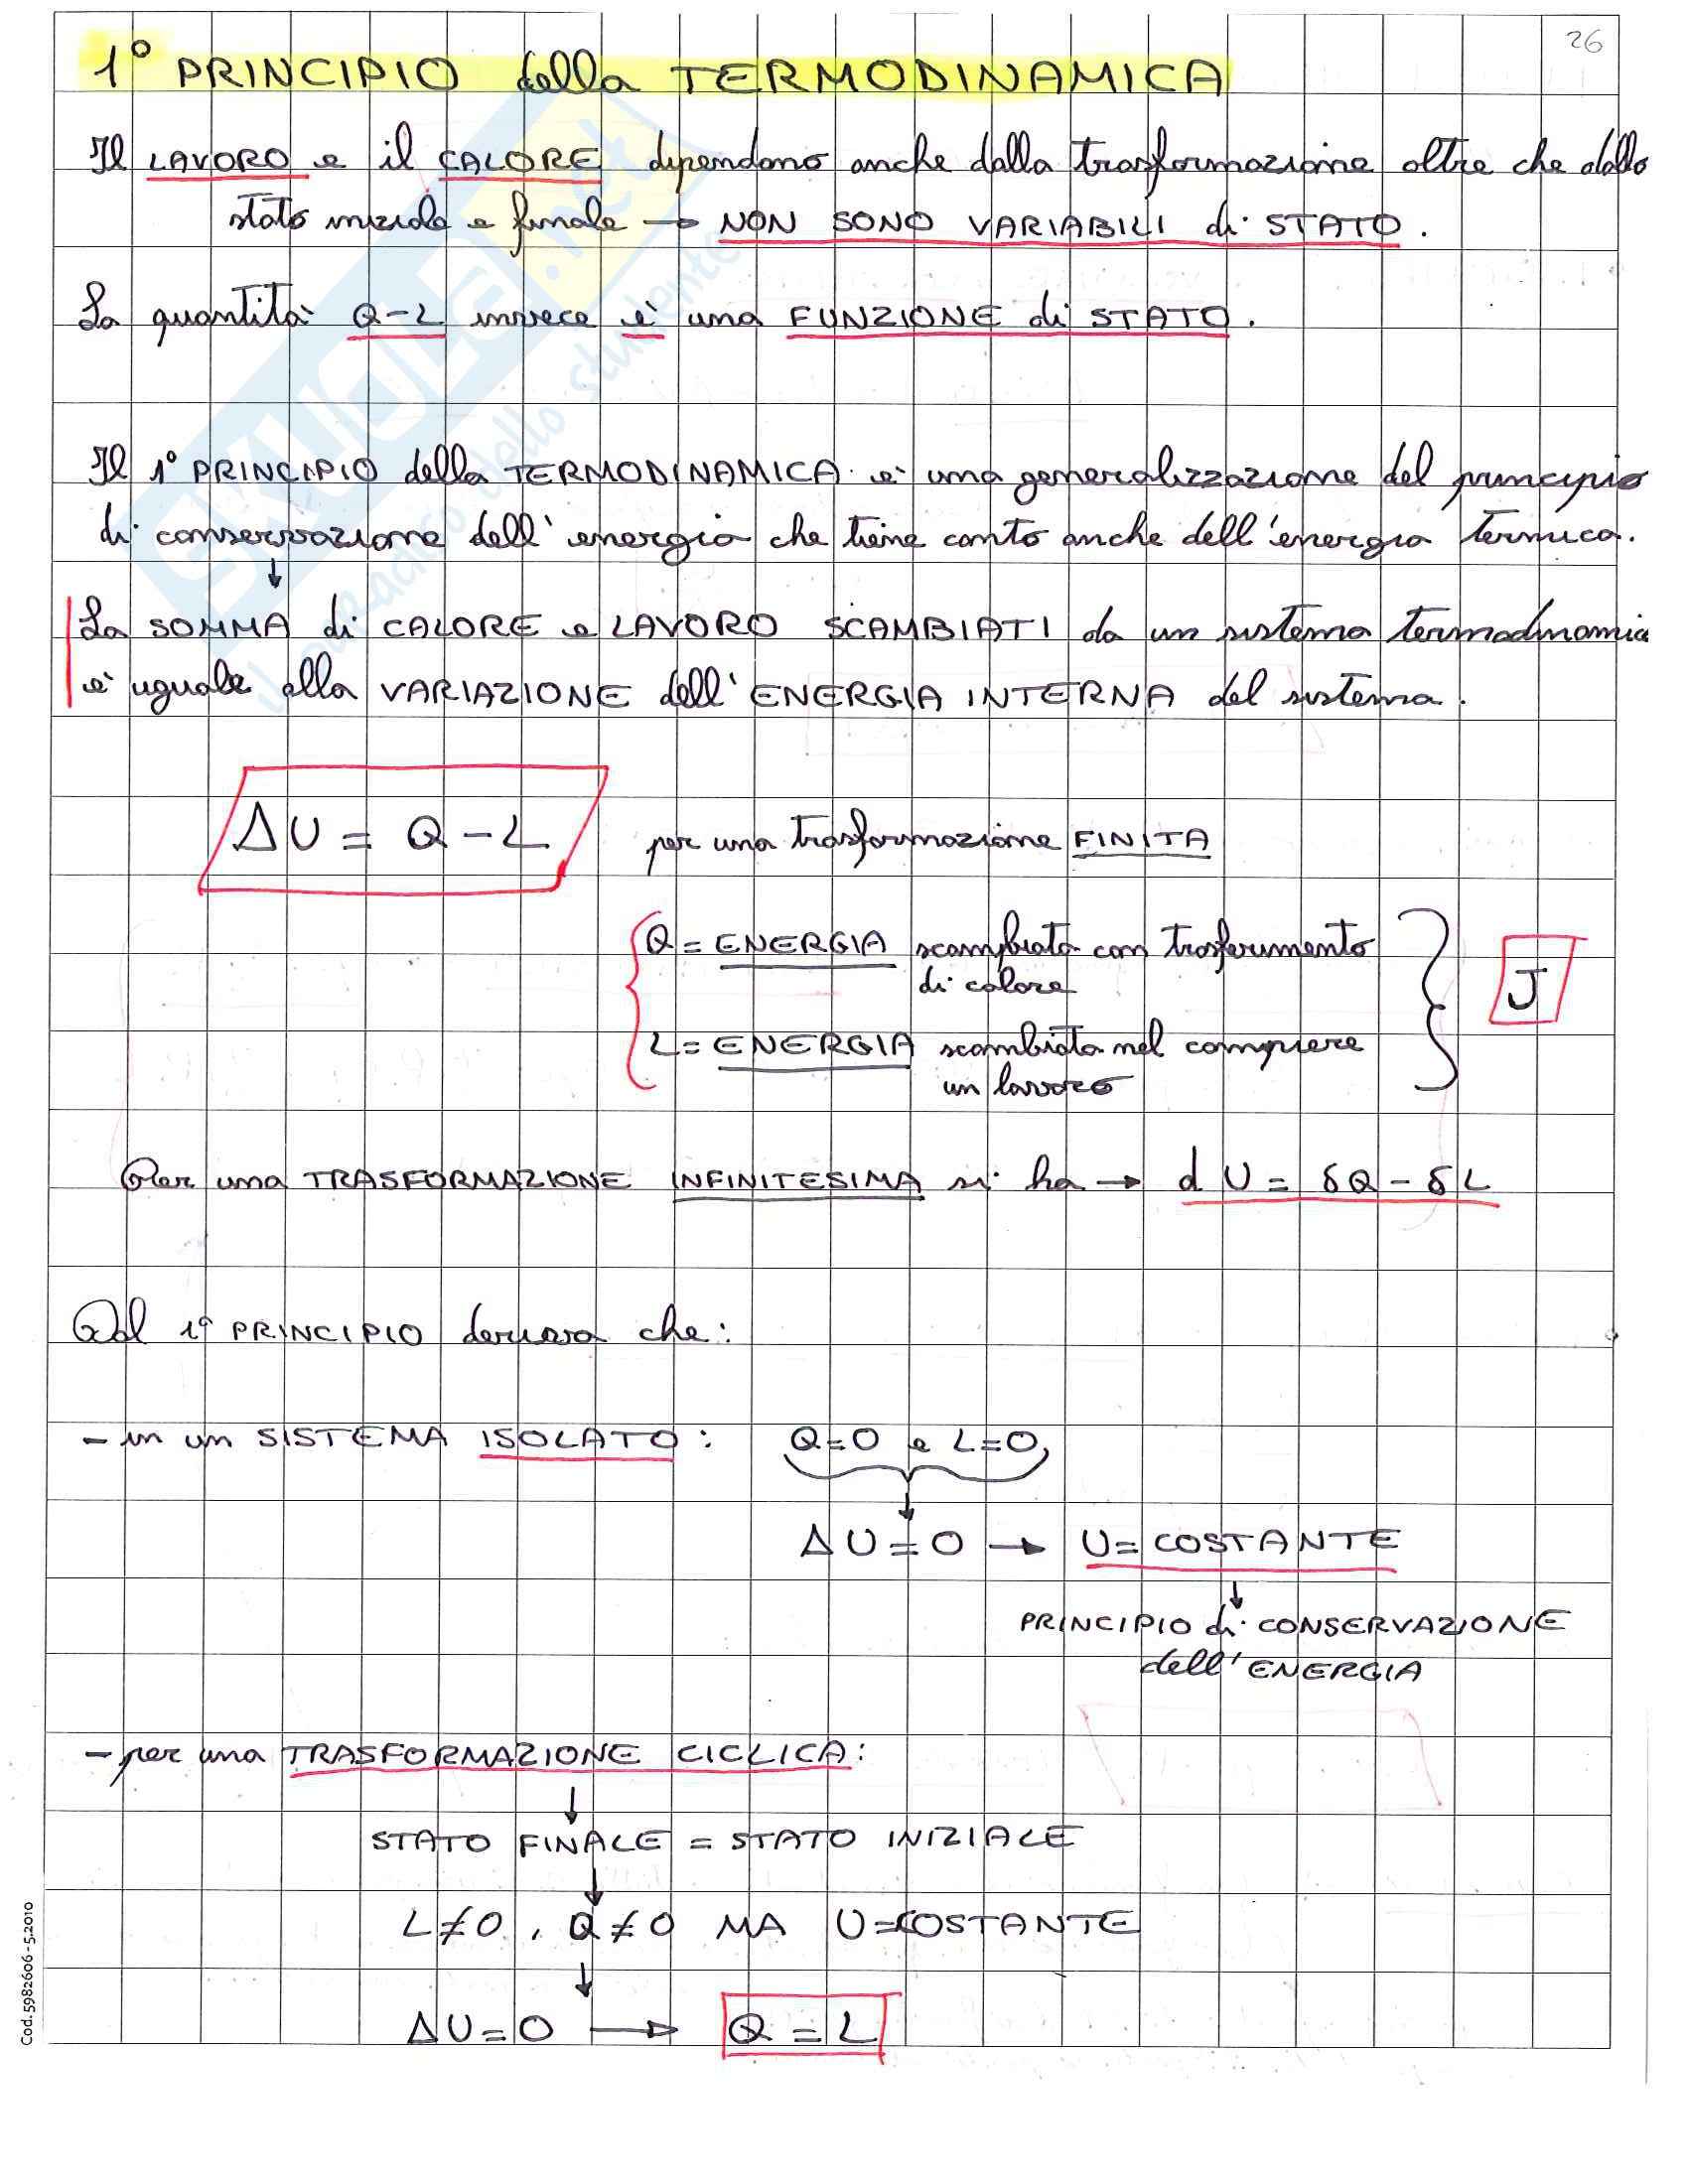 26
1° PRINCIPIO della TERMODINAMICA
Il LAVORO e il CALORE dipendono anche dalla trasformazione oltre che dallo
stato iniziale e finale → NON SONO VARIABILI di STATO.
La quantità Q-L invece è una FUNZIONE di STATO.
Il 1° PRINCIPIO della TERMODINAMICA è una generalizzazione del principio
di conservazione dell'energia che tiene conto anche dell'energia termica.
↓
La SOMMA di CALORE e LAVORO SCAMBIATI da un sistema termodinamico
è uguale alla VARIAZIONE dell'ENERGIA INTERNA del sistema.
ΔU = Q - L per una trasformazione FINITA
Q = ENERGIA scambiata con trasferimento
di calore
J
L = ENERGIA scambiata nel compiere
un lavoro
Per una TRASFORMAZIONE INFINITESIMA si ha → dU = δQ - δL
Dal 1° PRINCIPIO deriva che:
- in un SISTEMA ISOLATO: Q=0 e L=0,
↓
ΔU = 0 → U = COSTANTE
↓
PRINCIPIO di CONSERVAZIONE
dell'ENERGIA
- per una TRASFORMAZIONE CICLICA:
↓
STATO FINALE = STATO INIZIALE
↓
L≠0, Q≠0 MA U=COSTANTE
↓
ΔU = 0 → Q = L
SKUOLA.net
il paradiso dello studente
Cod. 5982606 - 5.2010